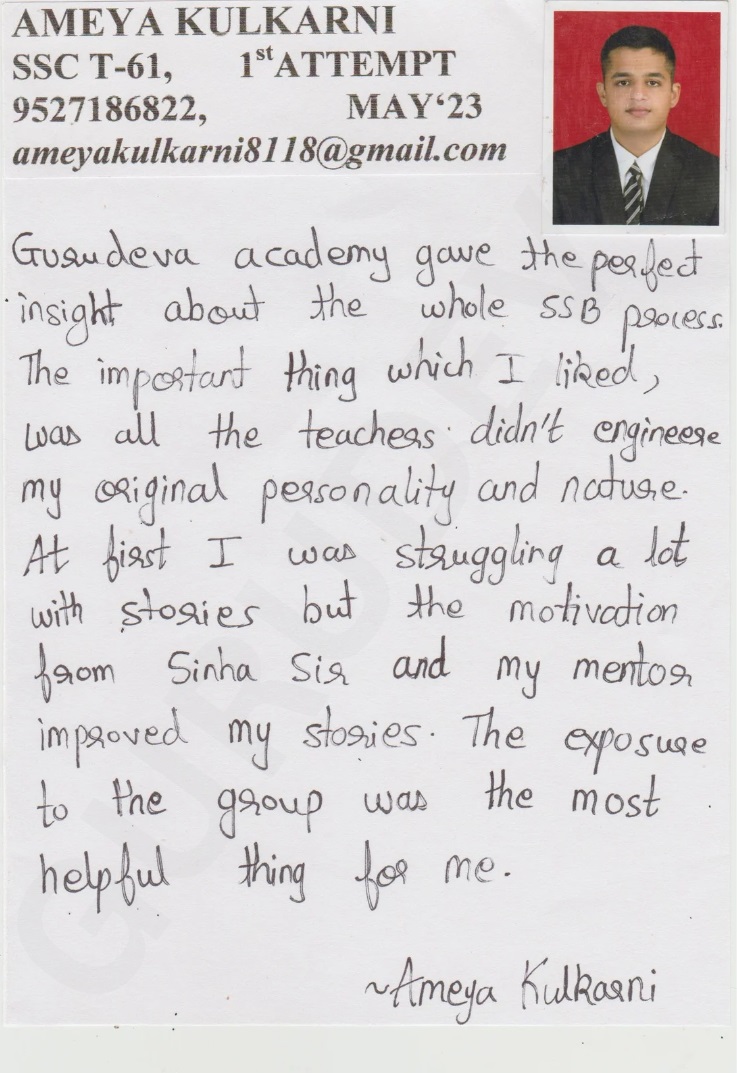 AMEYA KULKARNI
SSC T-61, 1st ATTEMPT
9527186822, MAY‘23
ameyakulkarni8118@gmail.com
Gurudeva academy gave the perfect
insight about the whole SSB process.
The important thing which I liked,
was all the teachers didn't engineere
my original personality and nature.
At first I was struggling a lot
with stories but the motivation
from Sinha Sir and my mentor
improved my stories. The exposure
to the group was the most
helpful thing for me.
~Ameya Kulkarni